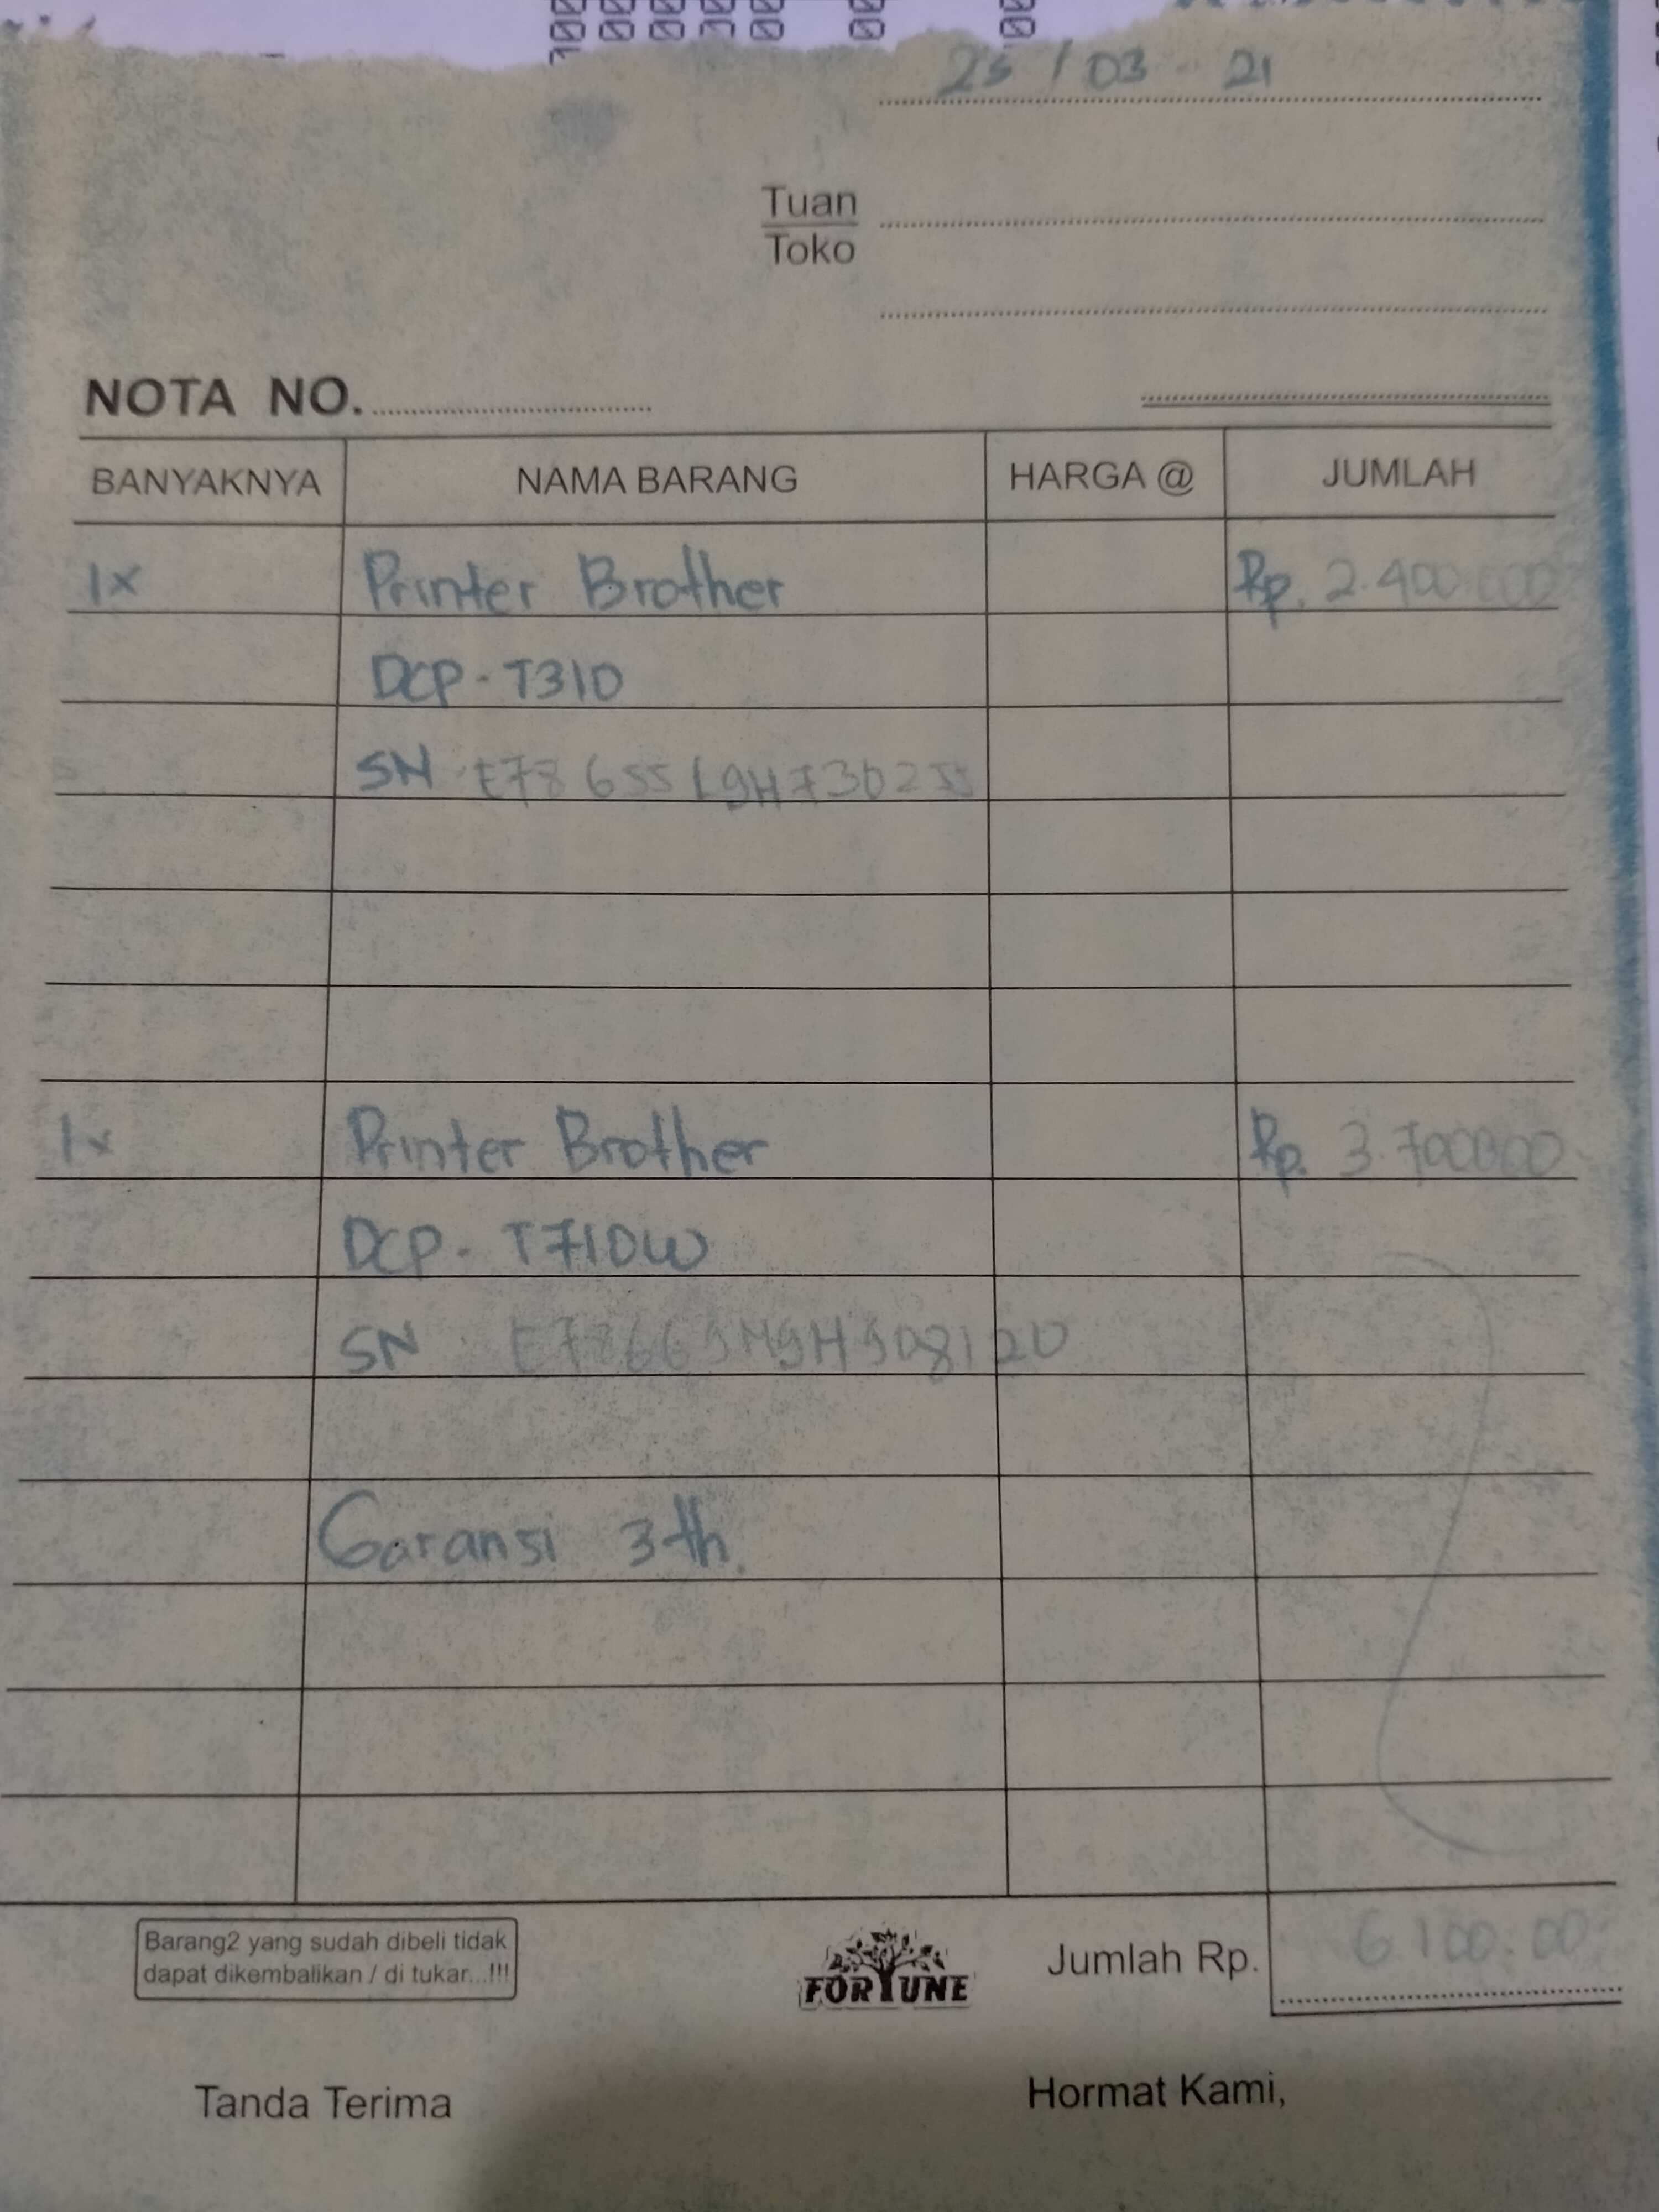 25 / 03 - 21
Tuan
Toko
NOTA NO.
BANYAKNYA NAMA BARANG HARGA @ JUMLAH
1x Printer Brother Rp. 2.400.000
DCP - T310
SN
1x Printer Brother Rp. 3.700000
DCP - T710W
SN
Garansi 3 th.
Barang2 yang sudah dibeli tidak
dapat dikembalikan / di tukar...!!!
FORTUNE
Jumlah Rp. 6.100.00
Tanda Terima Hormat Kami,